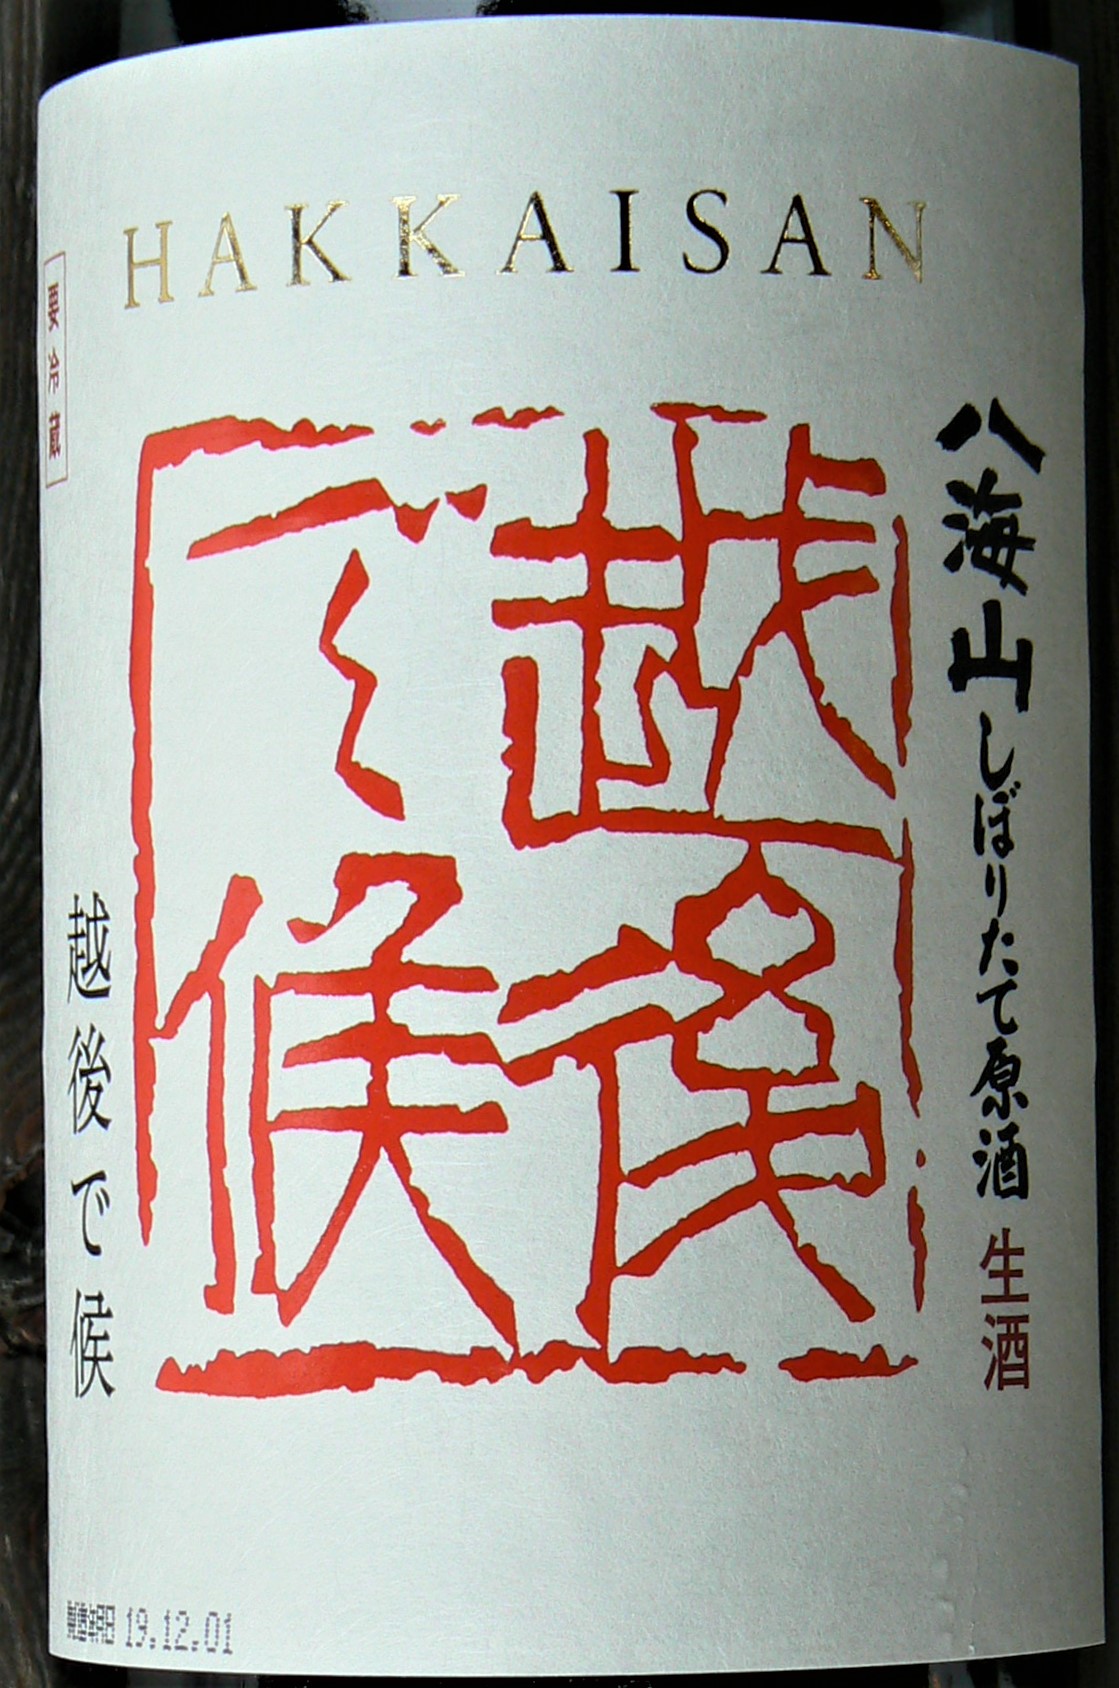 HAKKAISAN
要冷蔵
八海山しぼりたて原酒 生酒
越後で候
越後で候
製造年月日 19.12.01